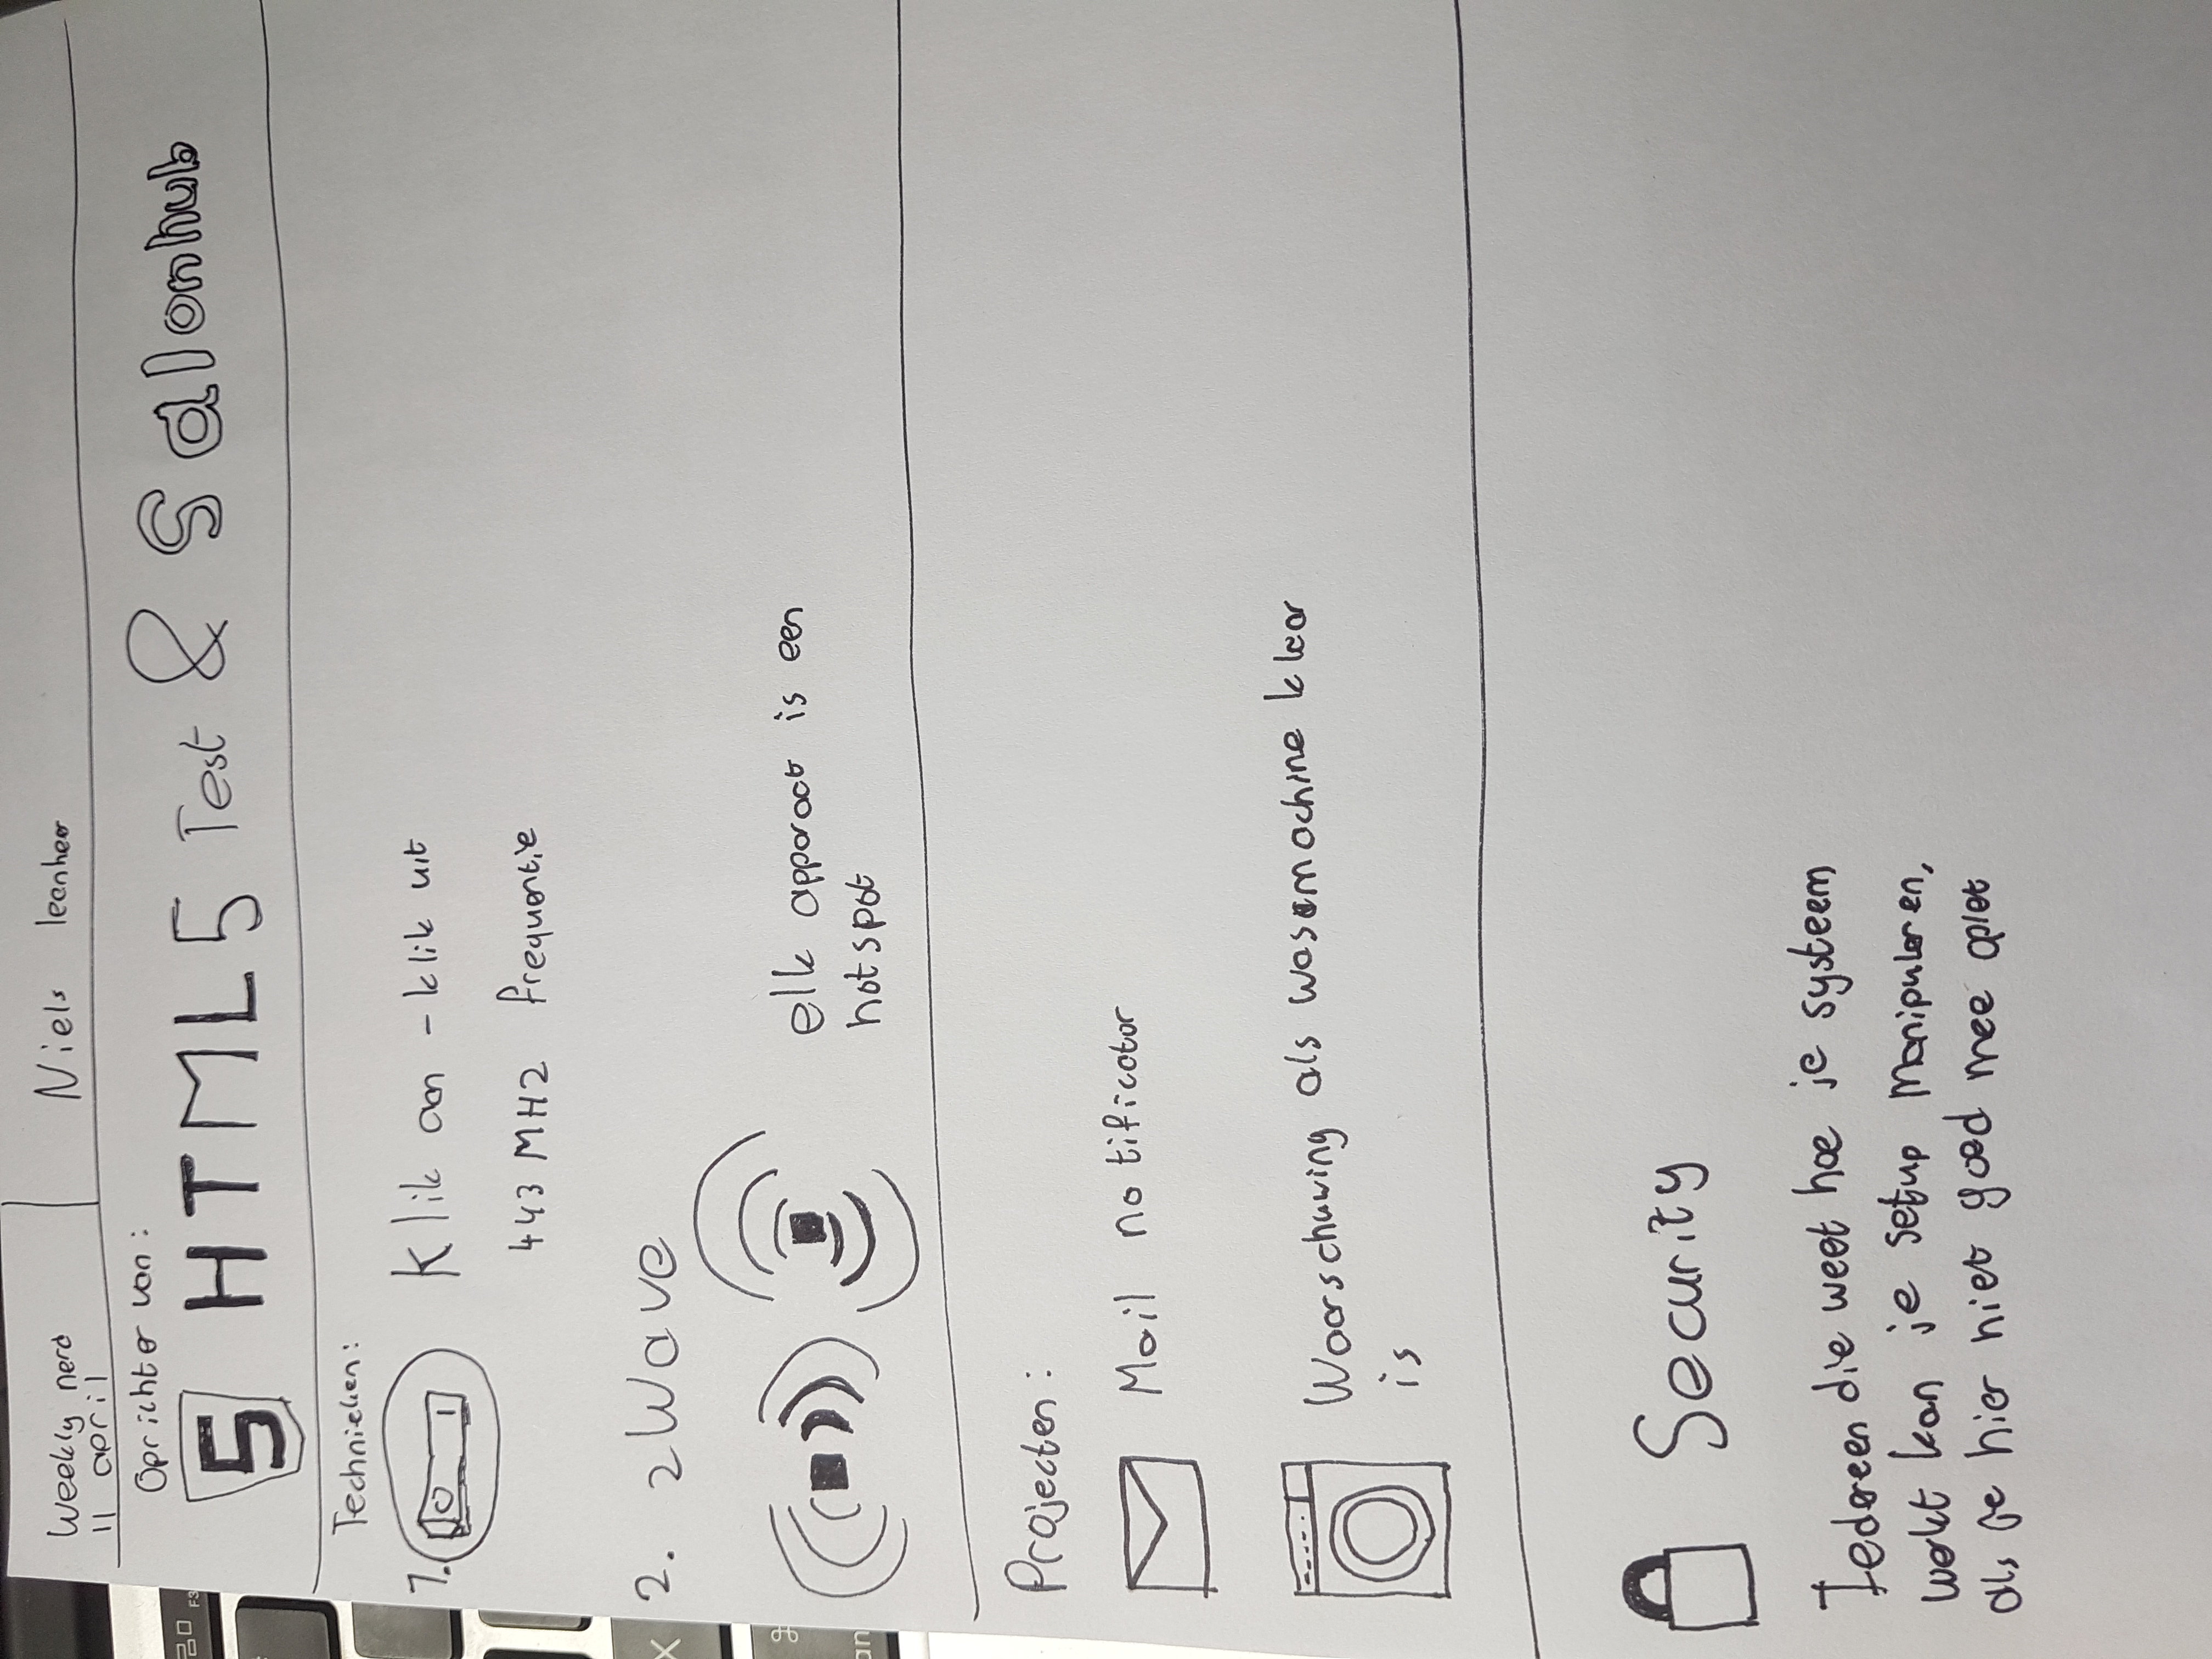 Weekly nerd
11 april
Niels leenheer
Oprichter van:
5 HTML5 Test & Salonhub
Technieken:
1. Klik aan - klik uit
443 MHz frequentie
2. zWave
elk apparaat is een
hotspot
Projecten:
Mail notificator
Waarschuwing als wasmachine klaar
is
Security
Iedereen die weet hoe je systeem
werkt kan je setup manipuleren,
als je hier niet goed mee oplet
F3
X
⌘